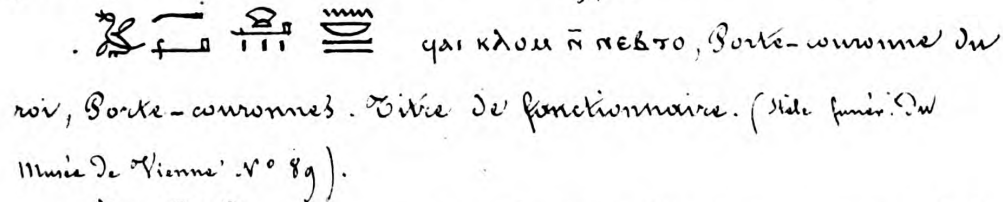 ϥⲁⲓ ⲕⲗⲟⲙ ⲛ̄ ⲛⲉⲃⲧⲟ, Porte-couronne du
roi, Porte-couronnes. Titre de fonctionnaire. (Stèle funér. du
Musée de Vienne N° 89).